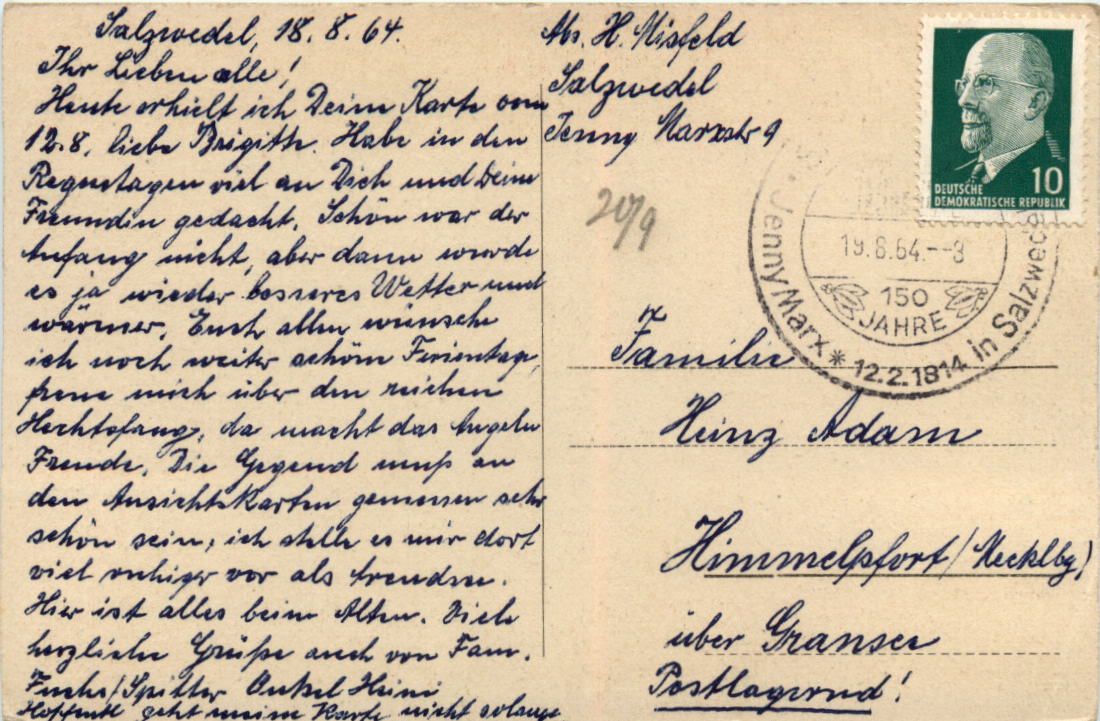 Salzwedel, 18. 8. 64.
Ihr Lieben alle!
Heute erhielt ich Deine Karte vom
12.8. liebe Brigitte. Habe in den
Regentagen viel an Dich und Deine
Freundin gedacht. Schön war der
Anfang nicht, aber dann wurde
es ja wieder besseres Wetter und
wärmer. Euch allen wünsche
ich noch weiter schöne Ferientage,
freue mich über den reichen
Hechtsfang, da macht das Angeln
Freude. Die Gegend muß an
den Ansichtskarten gemessen sehr
schön sein, ich stelle es mir dort
viel ruhiger vor als Arendsee.
Hier ist alles beim Alten. Viele
herzliche Grüße auch von Fam.
Fuchs/Spitter Onkel Heini
Hoffentl. geht meine Karte nicht solange
Abs. H. Misfeld
Salzwedel
Jenny Marxstr 9
20/9
DEUTSCHE
DEMOKRATISCHE REPUBLIK
10
19.8.64.--8
150
JAHRE
Jenny Marx * 12.2.1814 in Salzwedel
Familie
Heinz Adam
Himmelpfort/Mecklbg)
über Gransee
Postlagernd!